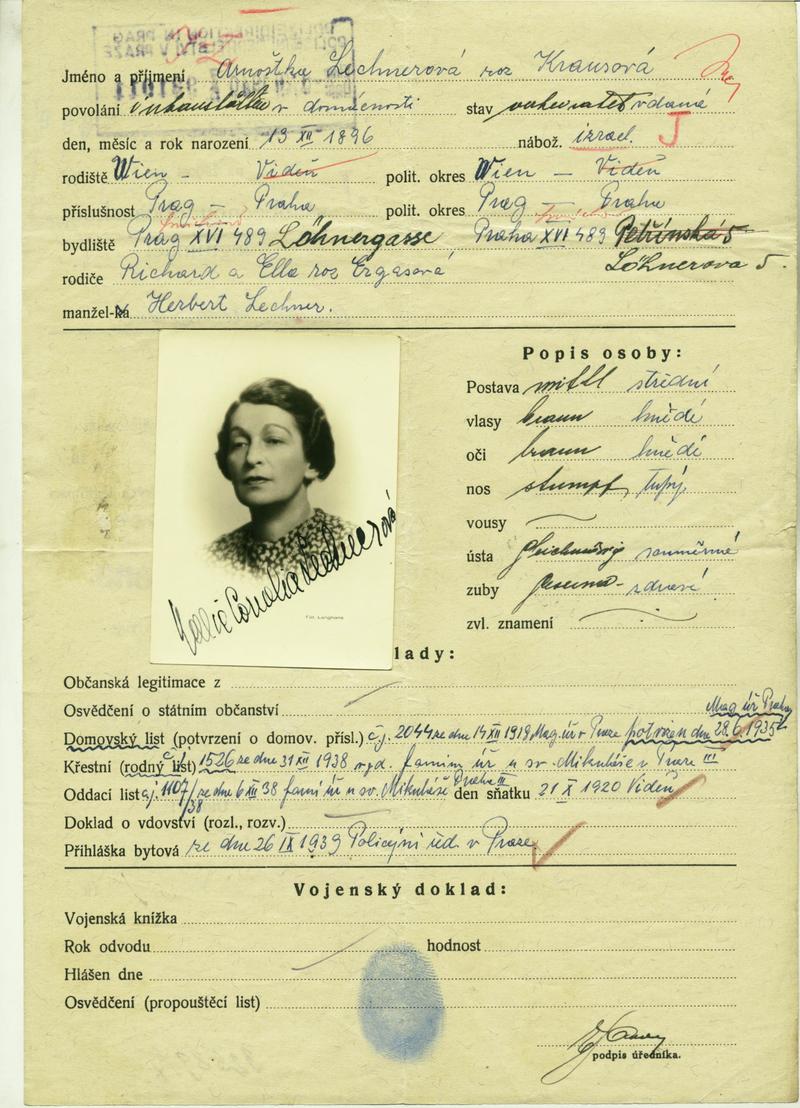 Jméno a příjmení Arnoštka Lechnerová roz Krausová
povolání v domácnosti stav verheiratet vdaná
den, měsíc a rok narození 13 XII 1896 nábož. izrael. J
rodiště Wien – Videň polit. okres Wien – Videň
příslušnost Prag – Praha polit. okres Prag – Praha
bydliště Prag XVI 489 Löhnergasse Praha XVI 489 Petřínská 5
Löhnerova 5.
rodiče Richard a Ella roz Ergasová
manžel-ka Herbert Lechner.
Popis osoby:
Postava mittl střední
vlasy braun hnědé
oči braun hnědé
nos stumpf, tupý
vousy
ústa souměrné
zuby zdravé
zvl. znamení
Lechnerová
Fot. Langhans
lady:
Občanská legitimace z
Osvědčení o státním občanství Mag úř Praha
Domovský list (potvrzení o domov. přísl.) č.j. 2044 ze dne 14 XII 1919 Mag. úř v Praze potvrzen dne 28.6.1935
Křestní (rodný list) 1526 ze dne 31 XII 1938 farním úř u sv. Mikuláše v Praze III
Oddací list č.j. 1107/38 ze dne 6 XII 38 farní úř u sv. Mikuláše Praha III den sňatku 21 X 1920 Videň
Doklad o vdovství (rozl., rozv.)
Přihláška bytová ze dne 26 IX 1939 Policejní řed. v Praze.
Vojenský doklad:
Vojenská knížka
Rok odvodu hodnost
Hlášen dne
Osvědčení (propouštěcí list)
podpis úředníka.